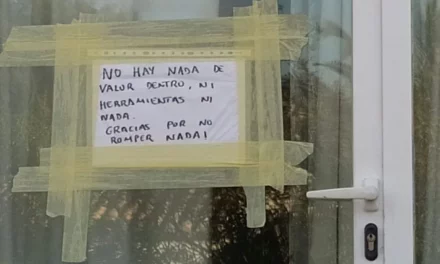 NO HAY NADA DE
VALOR DENTRO, NI
HERRAMIENTAS NI
NADA.
GRACIAS POR NO
ROMPER NADA!